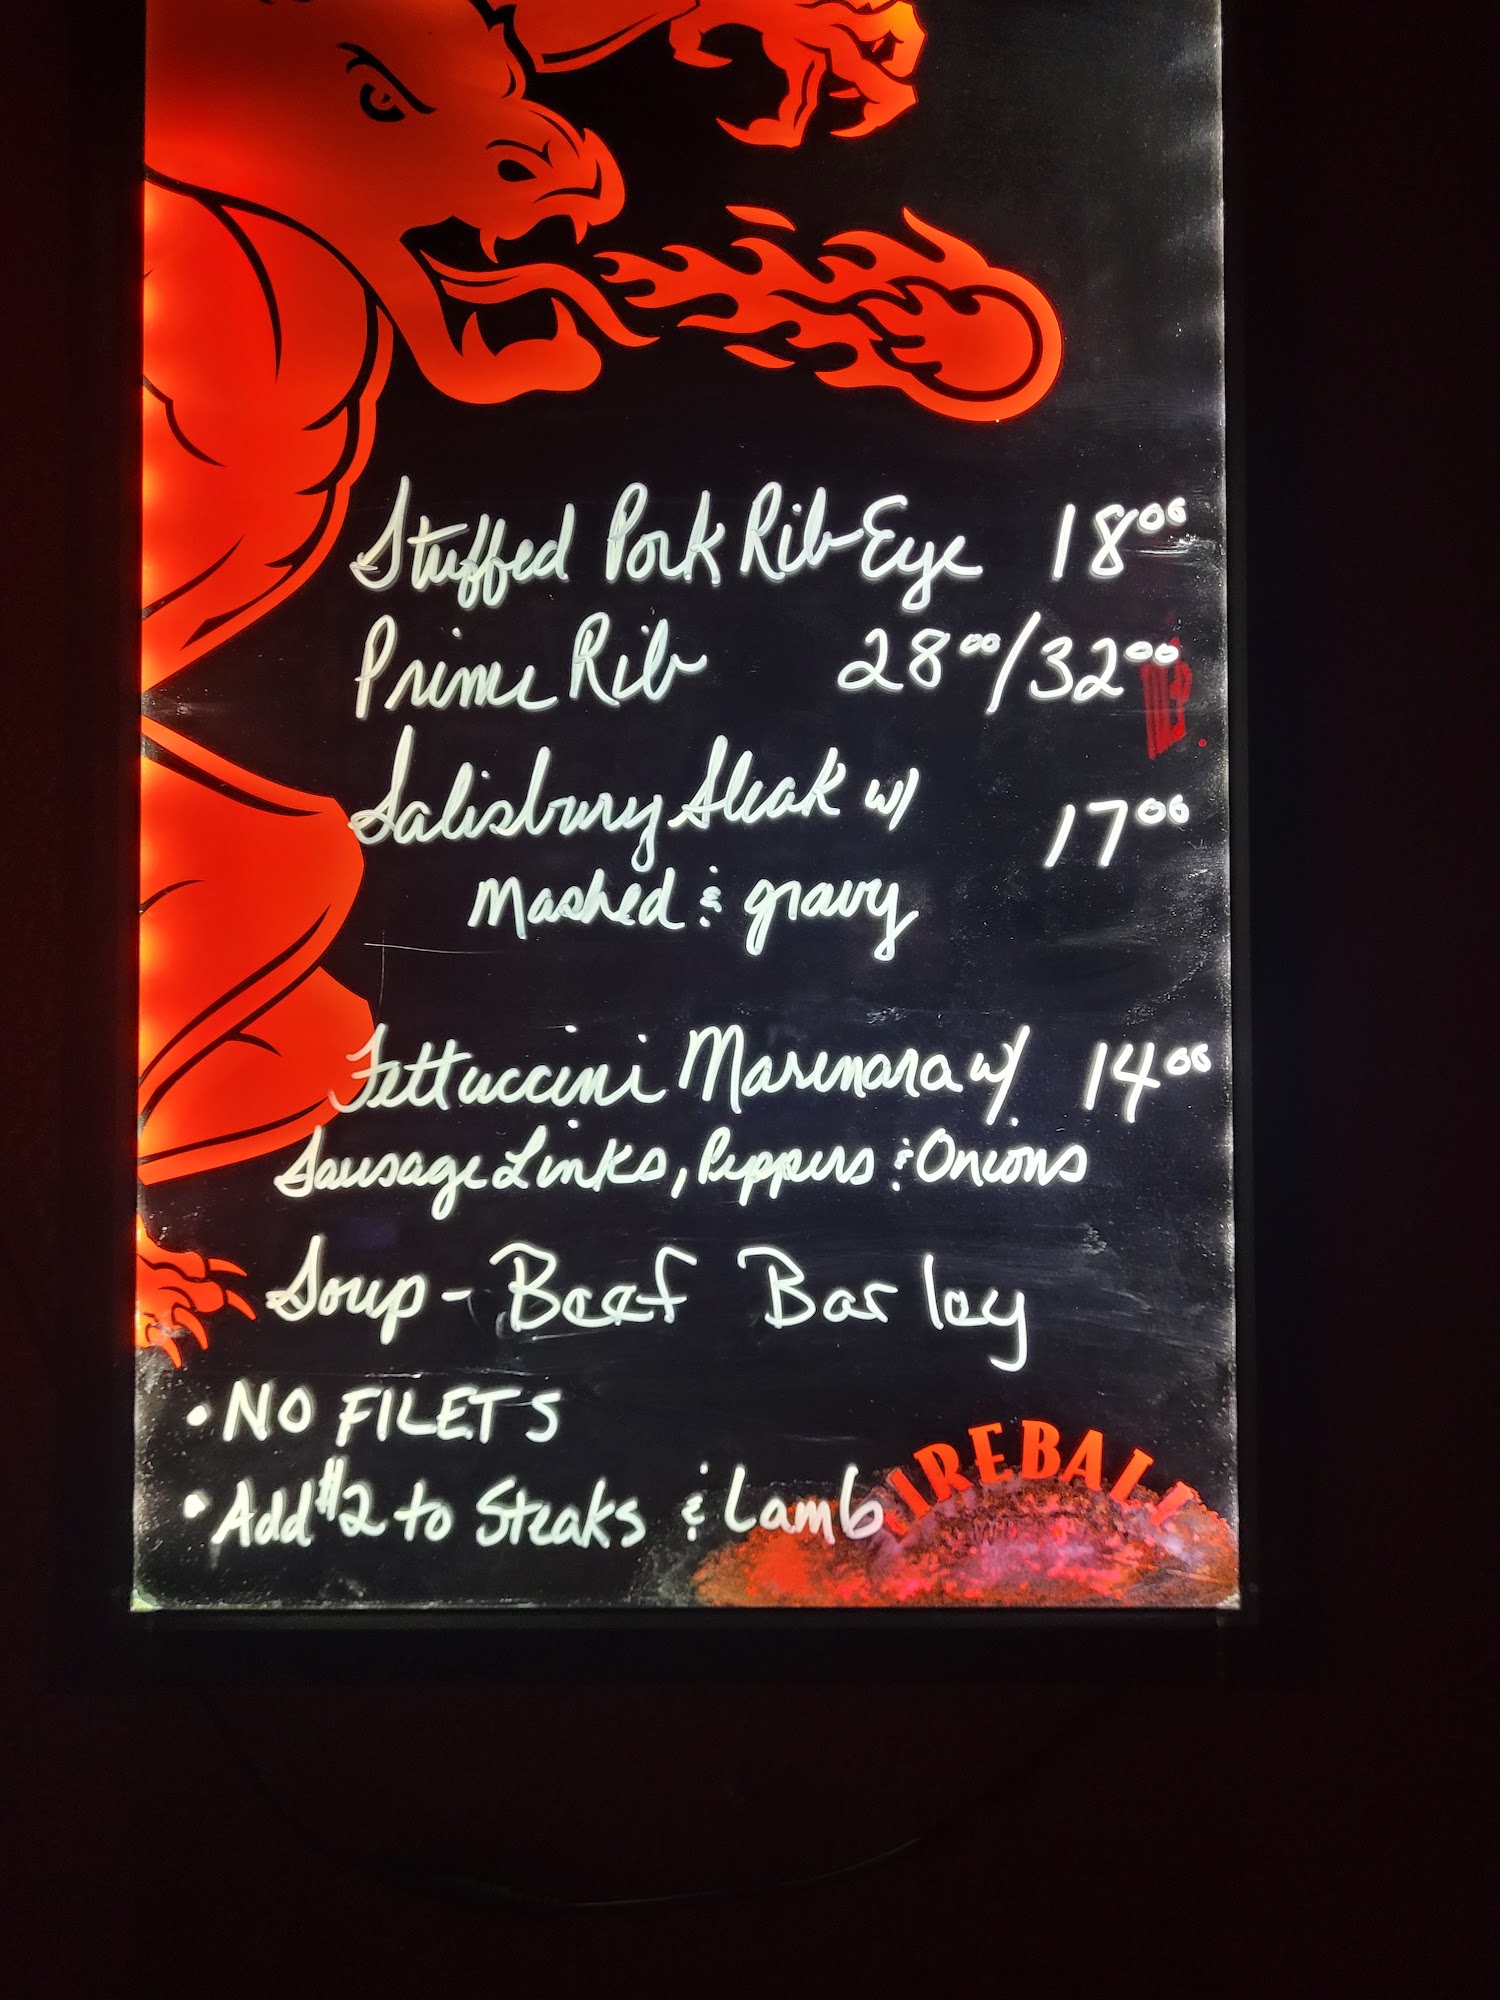 Stuffed Pork Rib Eye 18⁰⁰
Prime Rib 28⁰⁰/32⁰⁰
Salisbury Steak w/ 17⁰⁰
Mashed & gravy
Fettuccini Marinara w/ 14⁰⁰
Sausage Links, Peppers & Onions
Soup - Beef Barley
• NO FILETS
• Add $2 to Steaks & Lamb
FIREBALL